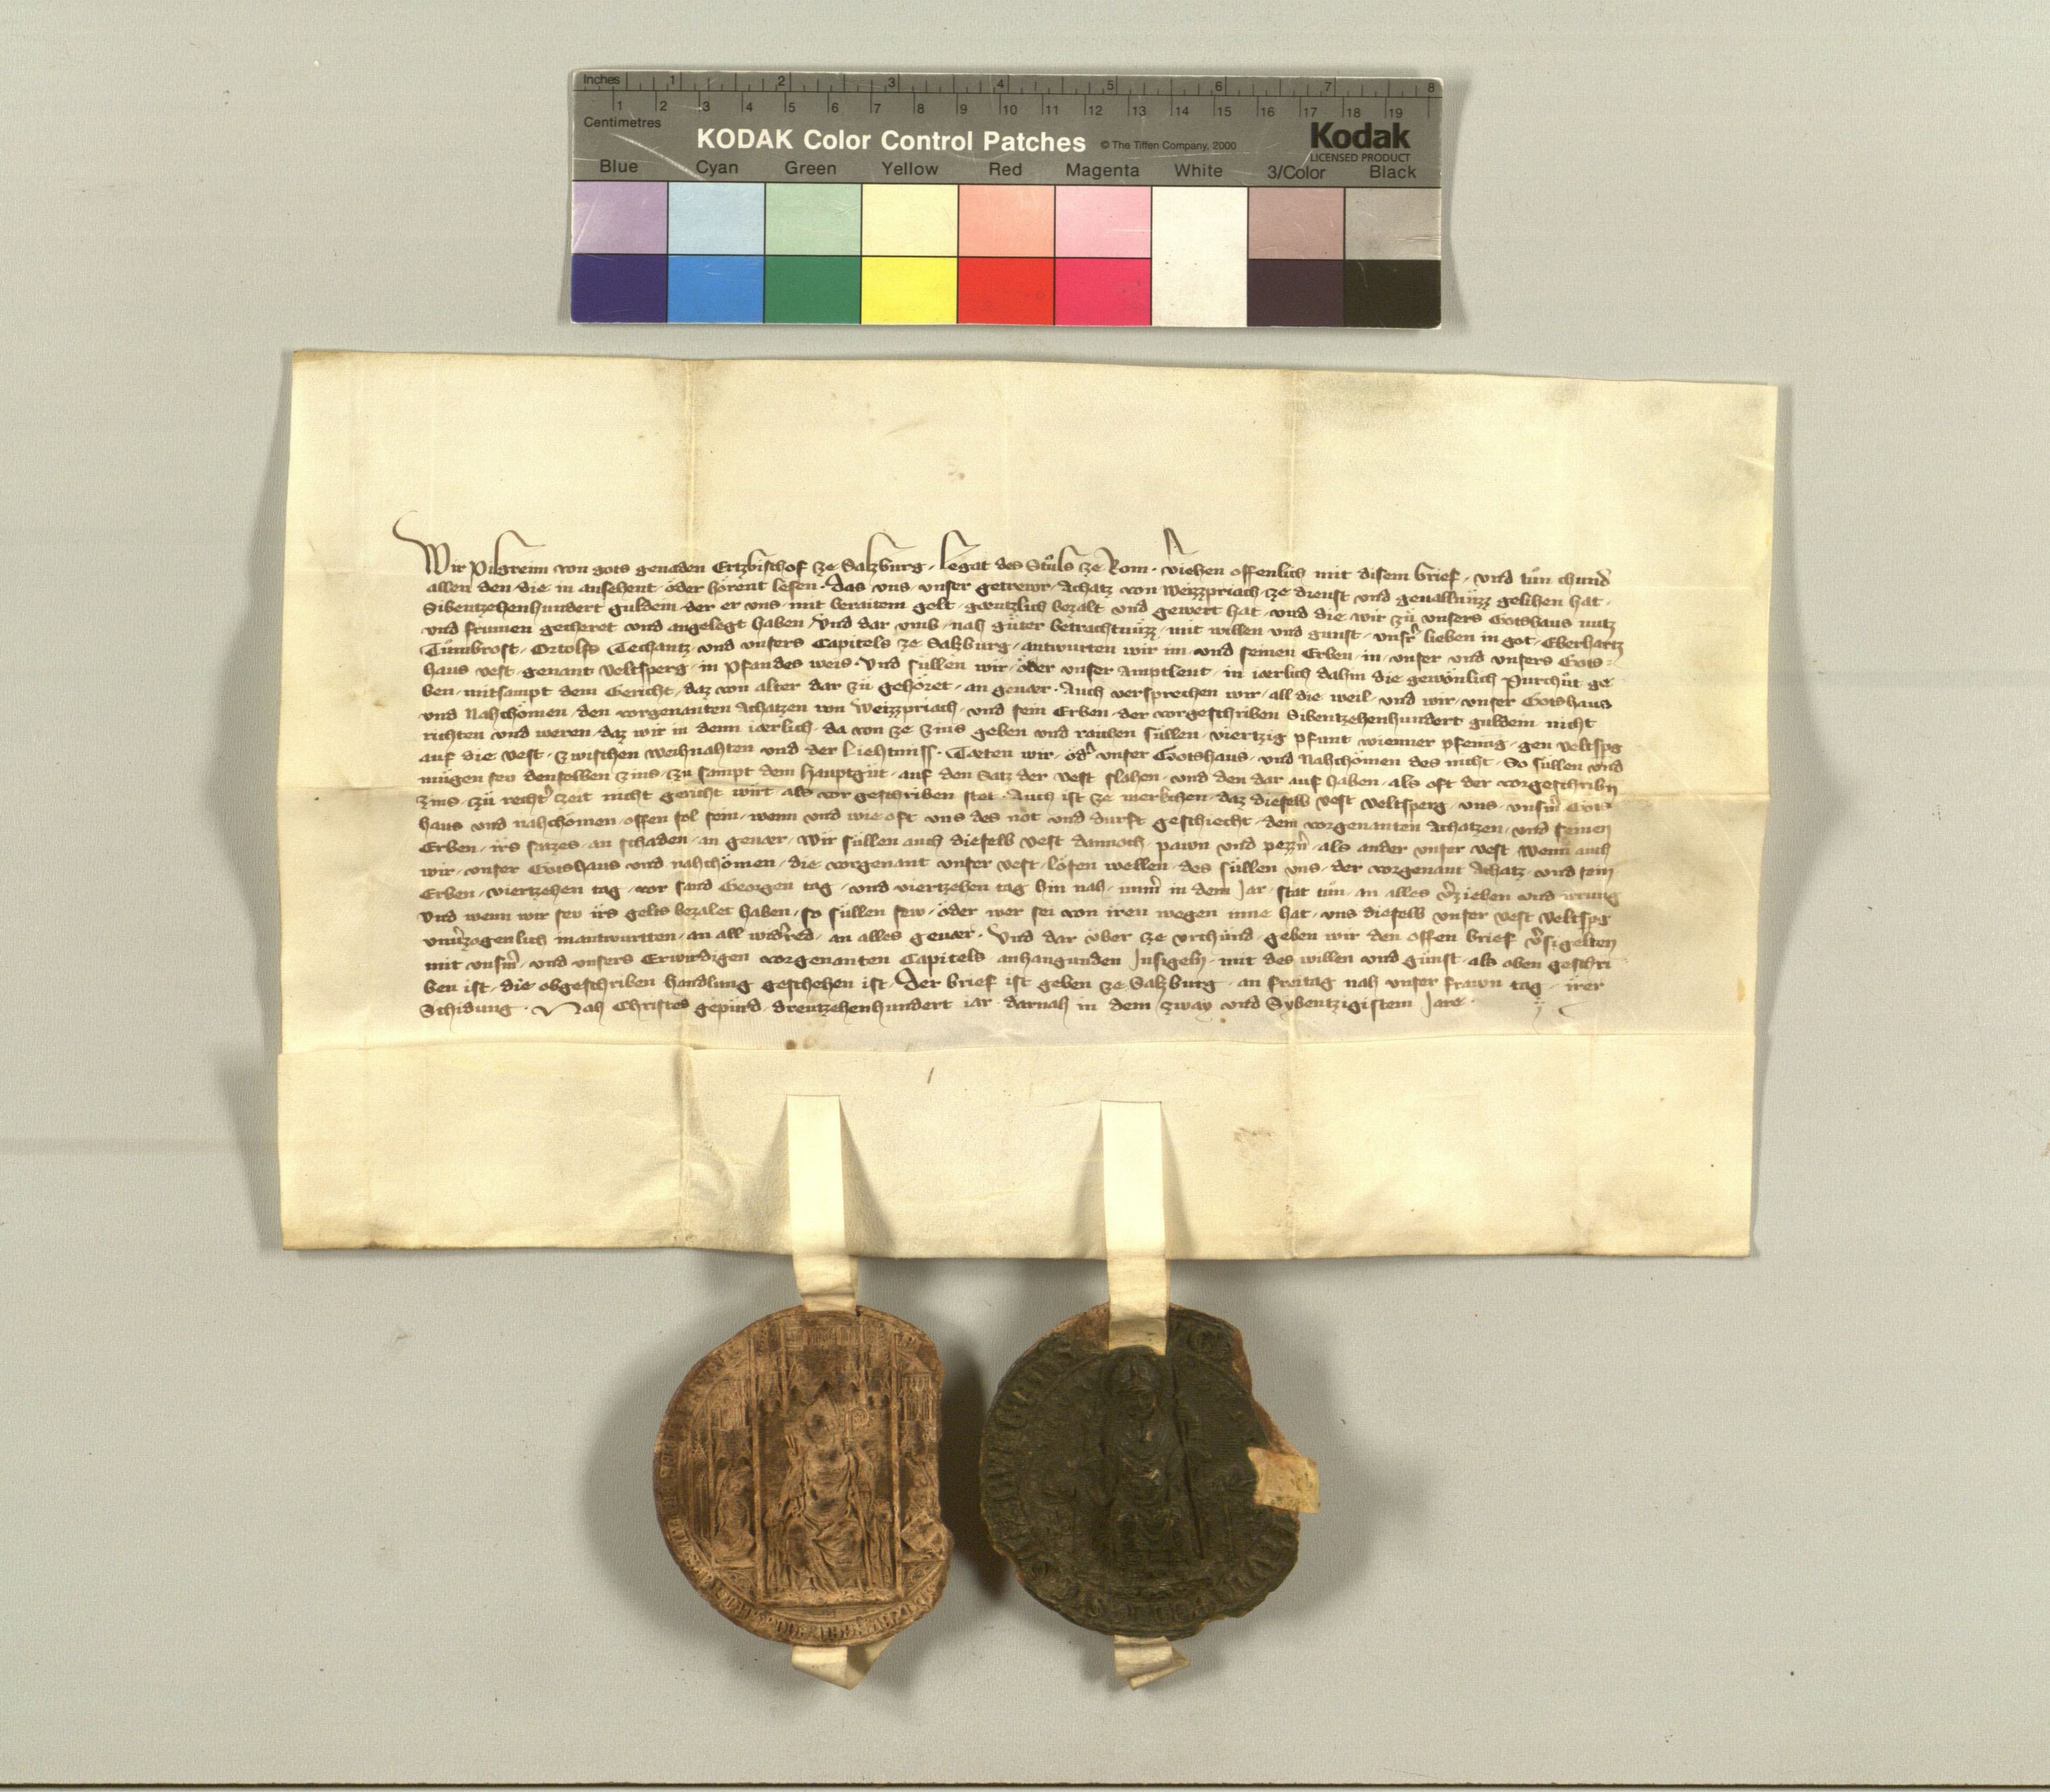 Inches 1 2 3 4 5 6 7 8
1 2 3 4 5 6 7 8 9 10 11 12 13 14 15 16 17 18 19
Centimetres
KODAK Color Control Patches © The Tiffen Company, 2000 Kodak
LICENSED PRODUCT
Blue Cyan Green Yellow Red Magenta White 3/Color Black
Wir Pilgreim von gots genaden Ertzbischof ze Salzburg, Legat des Stuͦls ze Rom. v̓iehen offenlich mit disem brief, und tuͤn chund
allen den die in ansehent oder hoͤrent lesen. Das uns, unser getrewr Achatz von Weizzpriach ze dienst und geuallnuͤzz gelihen hat,
Sibentzehenhundert guldem, der er uns mit beraitem gelt, gæntzlich bezalt und gewert hat, und die wir zuͤ unsers Gotshaus nutz
und frumen gecheret und angelegt haben, Und dar umb, nah guͤter betrachtnuͤzz, mit willen und gunst, unsr̓ lieben in got, Eberhartz
Tuͤmbrost, Ortolfs Techantz, und unsers Capitels ze Salzburg, antwurten wir im und seinen Erben, in, unser und unsers Gots-
haus vest, genant Veltsperg, in Pfandes weis. Und sullen wir, oder unser Amptleut, in iærlich dahin die gewoͤnlich Purchuͤt ge
ben, mitsampt dem Gericht, daz von alter dar zuͤ gehoͤret, an geuær. Auch versprechen wir, all die weil, und wir, unser Gotshaus
und Nahchoͤmen, den vorgenanten Achatzen von Weizzpriach, und sein Erben, der vorgeschriben Sibentzehenhundert guldein, nicht
richten und weren, daz wir in denn iærlich, da von ze zins geben und raihen suͤllen, viertzig pfunt wienner pfennig, gen Veltspg
auf die vest, zwischen Weihnahten und der Liehtmiss. Tæten wir, od̓ unser Gotshaus, und Nahchoͤmen des nicht, So suͤllen und
muͤgen sev denselben zins, zu sampt dem Hauptguͤt, auf den Satz der vest slahen, und den dar auf haben, als oft der vorgeschribn
zins, zuͤ recht̓ zeit nicht gericht wirt, als vor geschriben stet. Auch ist ze merkchen, daz dieselb vest Veltsperg, uns, unsm̓ Gots
haus und nahchoͤmen, offen sol sein, wenn und wie oft uns des not und durft geschiecht, dem vorgenanten Achatzen, und seinen
Erben, irs satzes, an schaden, an geuær, Wir suͤllen auch dieselb vest dannoch, pawn und pezzn̓, als ander unser vest. Wenn auch
wir, unser Gotshaus und nahchoͤmen, die vorgenant unser vest, loͤsen wellen, des suͤllen uns, der vorgenant Achatz, und sein
Erben, viertzehen tag, vor sand Georgen tag, und viertzehen tag hin nah, imm̓ in dem Jar, stat tuͤn, an alles v̓ziehen und irrung
Und wenn wir sev irs gelts bezalet haben, so suͤllen sew, oder wer sei von iren wegen inne hat, uns dieselb unser vest Veltspg
unu̓zogenlich inantwurtten, an all wid̓red, an alles geuær. Und dar uͤber ze urchund, geben wir den offen brief v̓sigelten
mit unsm̓, und unsers Erwirdigen vorgenanten Capitels anhangunden Insigeln, mit des willen und gunst, als oben geschri
ben ist, die obgeschriben handlung geschehen ist, Der brief ist geben ze Salzburg, an freitag nah unser frawn tag, irer
Schidung. Nah Christes gepuͤrd, dreutzehenhundert iar, darnah in dem zway und Sybentzigistem Jare.